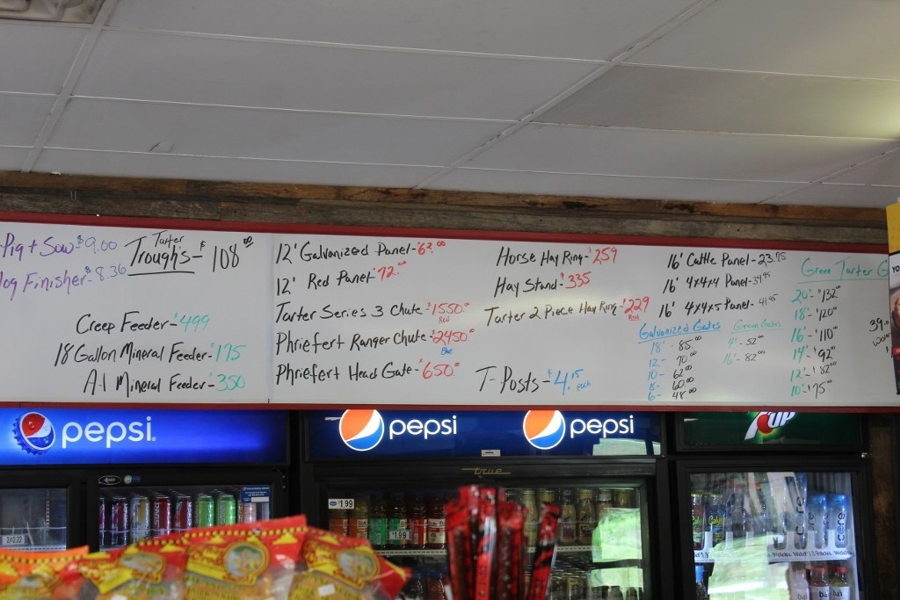 Pig & Sow - $9.00
Hog Finisher - $8.36
Tarter
Troughs - $108.00
Creep Feeder - $499
18 Gallon Mineral Feeder - $175
A-1 Mineral Feeder - $350
12' Galvanized Panel - $62.00
12' Red Panel - $72.00
Tarter Series 3 Chute - $1550.00
Red
Phriefert Ranger Chute - $2450.00
Blue
Phriefert Head Gate - $650.00
Horse Hay Ring - $259
Hay Stand - $335
Tarter 2 Piece Hay Ring - $229
Red
T-Posts - $4.15
each
16' Cattle Panel - 23.75
16' 4x4x4 Panel - 39.95
16' 4x4x5 Panel - 41.95
Galvanized Gates
16' - 85.00
12 - 70.00
10 - 62.00
8 - 60.00
6 - 48.00
4' - 52.00
16' - 82.00
Green Tarter G
20' - $132.00
18' - $120.00
16' - $110.00
14' - $92.00
12' - $82.00
10' - $75.00
pepsi
pepsi
pepsi
7UP
true
$1.99
$1.99